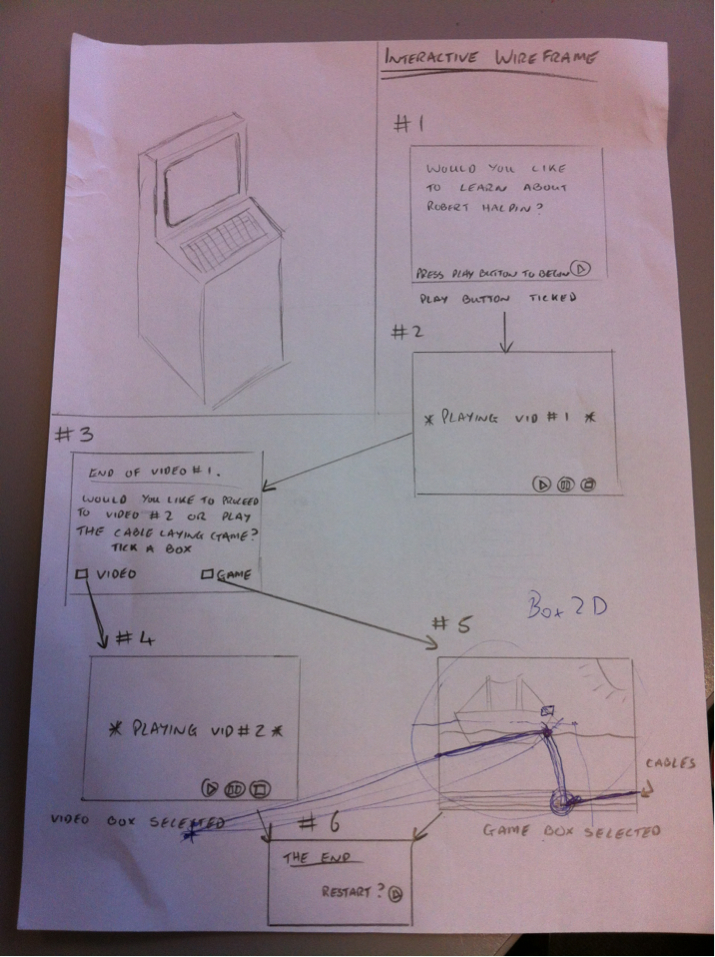 INTERACTIVE WIREFRAME
#1
WOULD YOU LIKE
TO LEARN ABOUT
ROBERT HALPIN?
PRESS PLAY BUTTON TO BEGIN
PLAY BUTTON TICKED
#2
* PLAYING VID #1 *
#3
END OF VIDEO #1.
WOULD YOU LIKE TO PROCEED
TO VIDEO #2 OR PLAY
THE CABLE LAYING GAME?
TICK A BOX
VIDEO GAME
#4
* PLAYING VID #2 *
VIDEO BOX SELECTED
#5
Box 2D
CABLES
GAME BOX SELECTED
#6
THE END
RESTART?